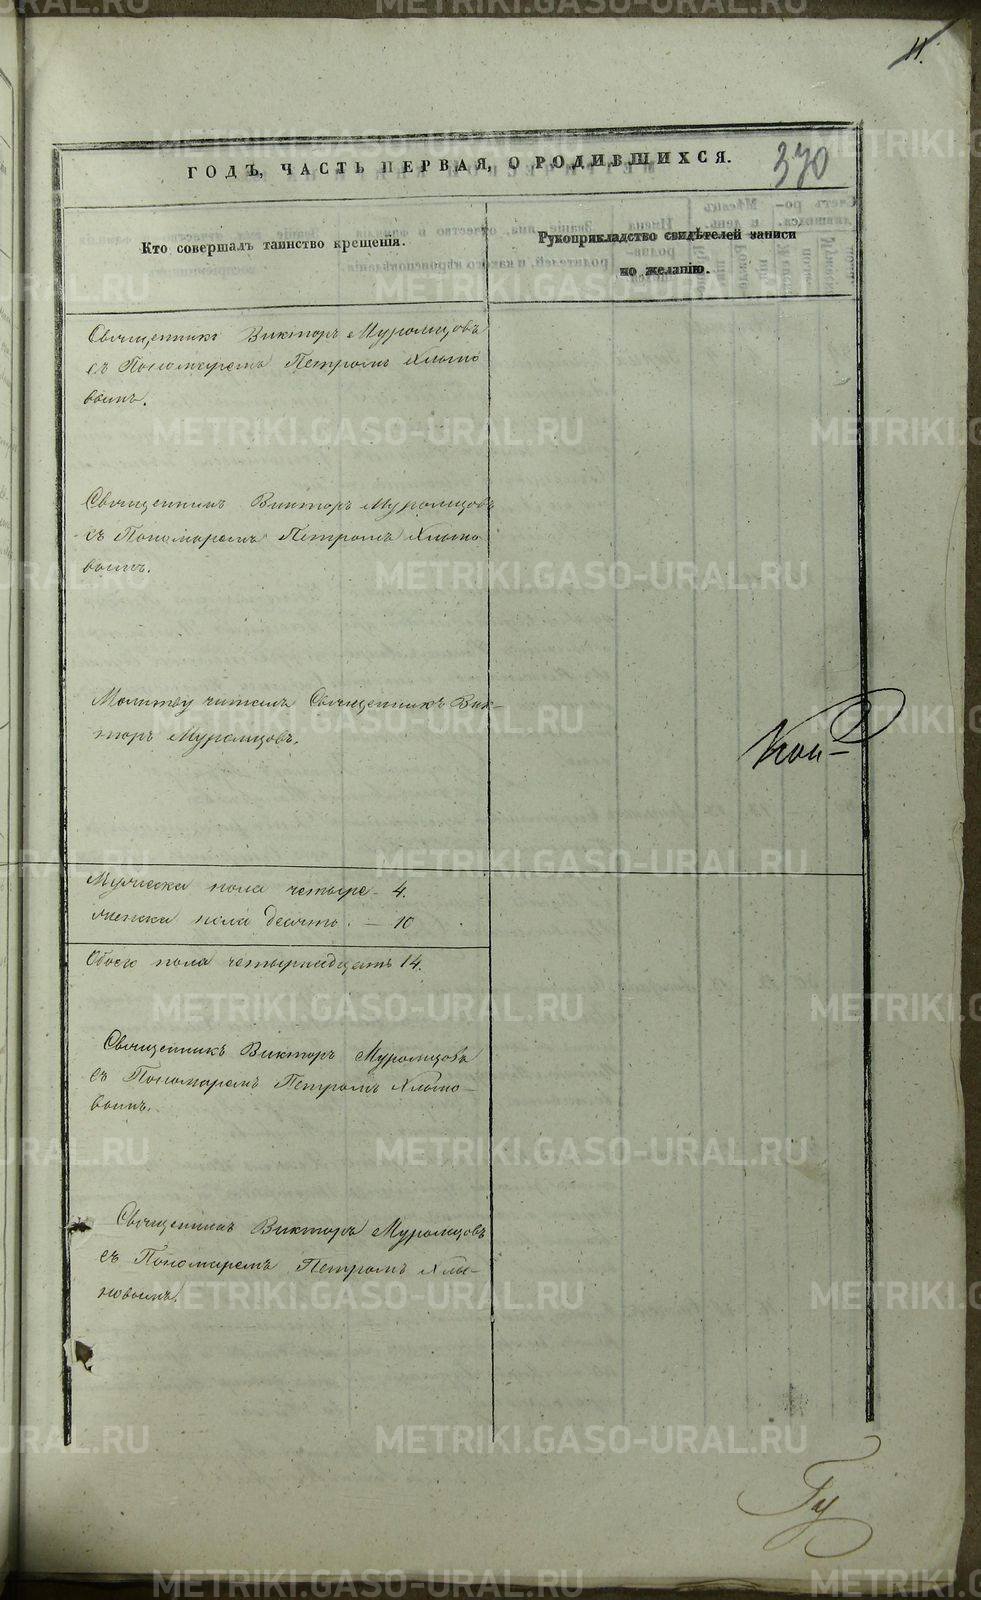 11.
370
ГОДЪ, ЧАСТЬ ПЕРВАЯ, О РОДИВШИХСЯ.
Кто совершалъ таинство крещенія.
Рукоприкладство свидѣтелей записи
по желанію.
Священникъ Викторъ Муромцовъ
съ Пономаремъ Петромъ Хлыно
вымъ.
Священникъ Викторъ Муромцовъ
съ Пономаремъ Петромъ Хлыно
вымъ.
Молитву читалъ Священникъ Вик-
торъ Муромцовъ.
Мужеска пола четыре – 4.
Женска пола десять. – 10
Обоего пола четырнадцать 14.
Священникъ Викторъ Муромцовъ
съ Пономаремъ Петромъ Хлыно-
вымъ.
Священникъ Викторъ Муромцовъ
съ Пономаремъ Петромъ Хлы-
новымъ.
METRIKI.GASO-URAL.RU